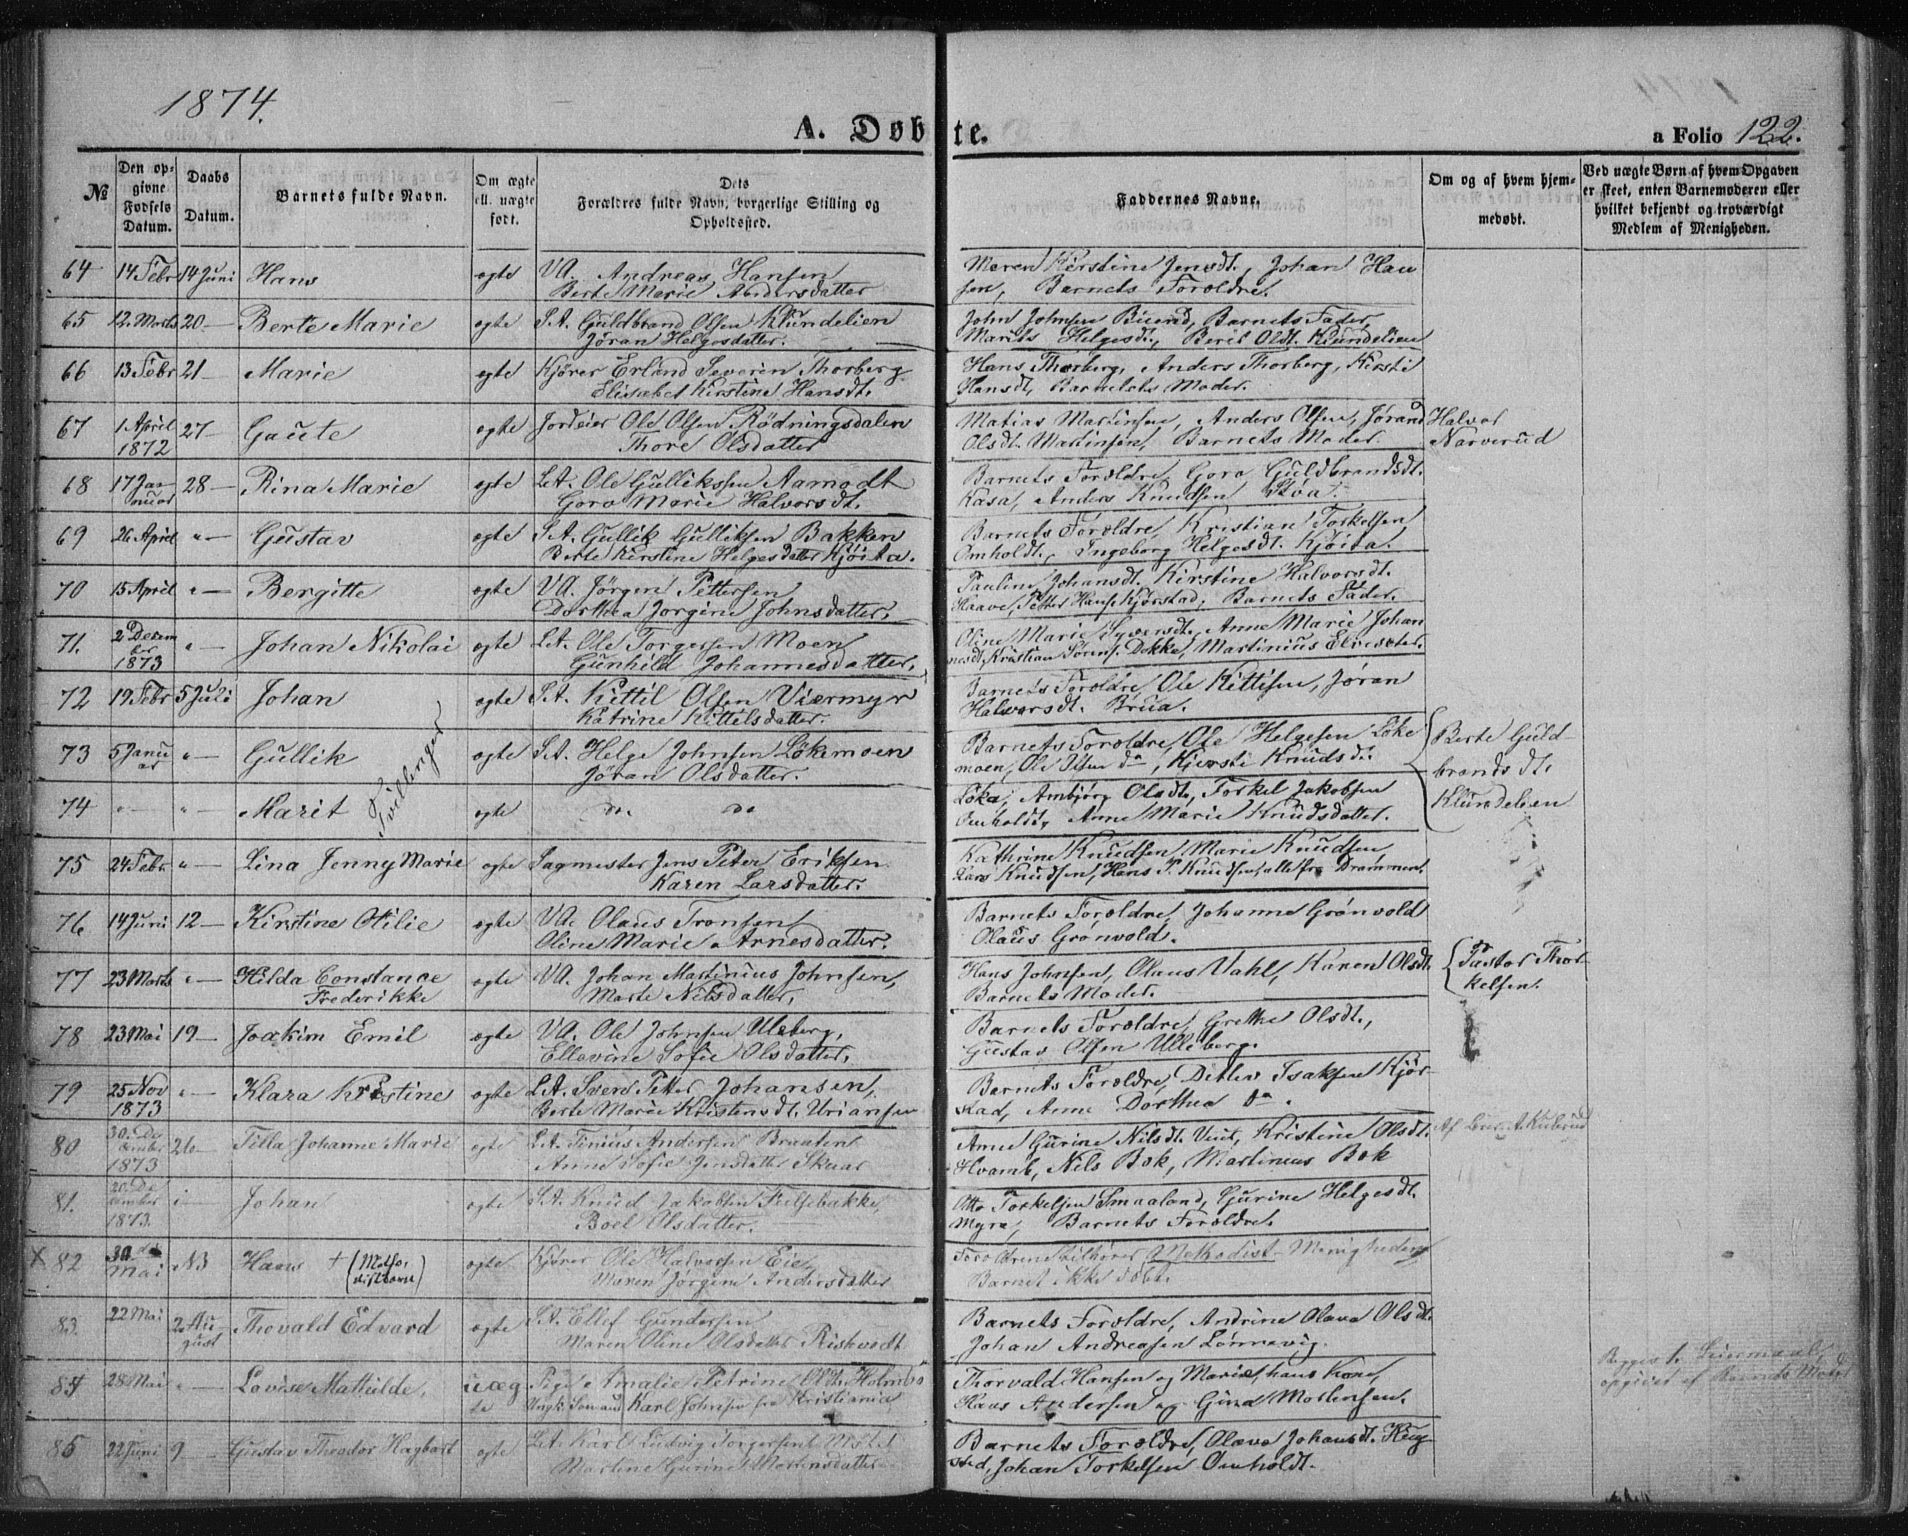 1874.
A. Døbte.
a Folio 122.
№
Den opgivne Fødsels Datum.
Daabs Datum.
Barnets fulde Navn.
Om ægte ell. uægte født.
Dets Forældres fulde Navn, borgerlige Stilling og Opholdssted.
Faddernes Navne.
Om og af hvem hjemmedøbt.
Ved uægte Børn af hvem Opgaven er skeet, enten Barnemoderen eller hvilket bekjendt og troværdigt Medlem af Menigheden.
64 14 Febr 14 Juni Hans ægte VA. Andreas Hansen
Berte Marie Andersdatter
Maren Kirstine Jensdt., Johan Han
sen, Barnets Forældre.
65 12 Marts 20 — Berte Marie ægte SA. Guldbrand Olsen Klundelien
Jøran Helgesdatter.
John Johnsen Buind, Barnets Fader,
Marits Helgesdt., Berit Olsdt. Klundelien
66 13 Febr 21 — Marie ægte Kjører Erland Severin Thorberg
Elisabet Kirstine Hansdt.
Hans Thorberg, Anders Thorberg, Kirsti
Hansdt, Barnets Moder.
67 1 April 1872 27 — Gaute ægte Jordeier Ole Olsen Rødningsdalen
Thore Olsdatter
Matias Martinsen, Anders Olsen, Jørand
Olsdt. Martinsen, Barnets Moder
Halvor
Narverud
68 17 Januar 28 — Rina Marie ægte LA. Ole Gulliksen Aamodt
Goro Marie Halvorsdt.
Barnets Forældre, Goro Guldbrandsdt.
Kasa, Anders Knudsen Støa.
69 26 April " — Gustav ægte SA. Gullik Gulliksen Bakken
Berte Kirstine Helgesdatter Kjøita.
Barnets Forældre, Kristian Torkelsen
Omholdt, Ingeborg Helgesdt. Kjøita.
70 15 April " — Bergitte ægte VA. Jørgen Pettersen
Dorthea Jorgine Johnsdatter.
Pauline Johansdt. Kirstine Halvorsdt.
Haave, Petter Hans. Kjørstad, Barnets Fader.
71. 2 December 1873 " — Johan Nikolai ægte LA. Ole Torgersen Moen
Gunhild Johannesdatter.
Oline Marie Syversdt., Anne Marie Johan
nesdt, Kristian Sørens. Dokka, Martinius Elvesæter.
72 19 Febr 5 Juli Johan ægte SA. Kittil Olsen Viermyr
Katrine Kittilsdatter.
Barnets Forældre, Ole Kittilsen, Jøran
Halvorsdt. Brua.
73 5 Januar " — Gullik ægte SA. Helge Johnsen Løkemoen
Jøran Olsdatter.
Tvillinger
Barnets Forældre, Ole Helgesen Løke
moen, Ole Olsen do, Kjersti Knudsdt.
Berte Guld-
brandsdt.
Klundelien
74 " — " — Marit ægte do. do
Løka, Ambjørg Olsdt., Torkel Jakobsen
Omholdt, Anne Marie Knudsdatter.
75 24 Febr. " — Lina Jenny Marie ægte Sagmester Jens Peter Eriksen
Karen Larsdatter.
Kathrine Knudsen, Marie Knudsen
Lars Knudsen, Hans P. Knudsen, alle fra Drammen.
76 14 Juni 12 — Kirstine Otilie ægte VA. Olaus Tronsen
Oline Marie Arnesdatter.
Barnets Forældre, Johanne Grønvold
Olaus Grønvold.
77 23 Marts " — Hilda Constance
Frederikke ægte VA. Johan Martinius Johnsen,
Marte Nilsdatter.
Hans Johnsen, Olaus Vahl, Karen Olsdt.
Barnets Moder.
Pastor Thor-
kelsen.
78 23 Mai 19 — Joakim Emil ægte VA. Ole Johnsen Uleberg,
Ellevine Sofie Olsdatter.
Barnets Forældre, Grethe Olsdt.,
Gustav Olsen Ulleberg.
79 25 Nov 1873 " — Klara Kristine ægte LA. Svend Petter Johansen,
Berte Marie Kristensdt. Uriansen
Barnets Forældre, Ditlev Isaksen Kjør
stad, Anne Dorthea do.
80 30. December 1873 26 — Tilla Johanne Marie ægte LA. Tinius Andersen Braaten
Anne Sofie Jensdatter Skaar
Anne Gurine Nilsdt. Vent, Kristine Olsdt.
Hvamb, Nils Bok, Martinius Bok
81. 20. December 1873. " Johan ægte SA. Knud Jakobsen
Boel Olsdatter.
Otto Torkelsen Smaaland, Gurine Helgesdt.
Myra, Barnets Forældre.
X 82 30 Mai NB Hans + (Metho-
distnavn) ægte Kjører Ole Halvorsen Eie
Maren Jørgine Andersdatter
Forældrene tilhører Methodist-Menigheden
Barnet ikke døbt.
83. 22 Mai 2 August Thovald Edvard ægte SA. Ellef Gundersen
Maren Oline Olsdatter Riskvedt
Barnets Forældre, Andrine Olava Olsdt.
Johan Andreasen Lønnevig.
84 28 Mai " — Lovise Mathilde. uægte Pige Amalie Petrine Olsdt. Holmbo
Ungk. Sømand Karl Johnsen fra Kristiania
Thorvald Hansen og Marie, hans Kone,
Hans Andersen og Gina Mortensen.
Begges 1. Leiermaal,
opgivet af Barnets Moder
85 22 Juni 9 — Gustav Theodor Hagbart ægte LA. Karl Ludvig Torgersen
Martine Gurine Mortensdatter
Barnets Forældre, Olava Johansdt. Krug
sted, Johan Torkelsen Omholdt.